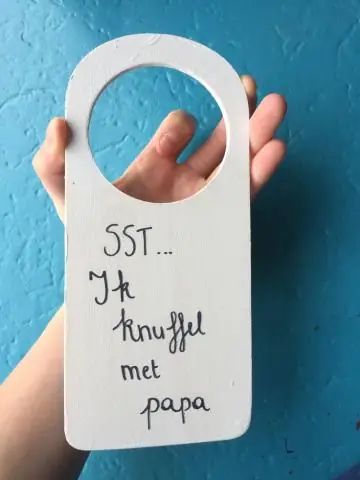 SST...
Ik
knuffel
met
papa